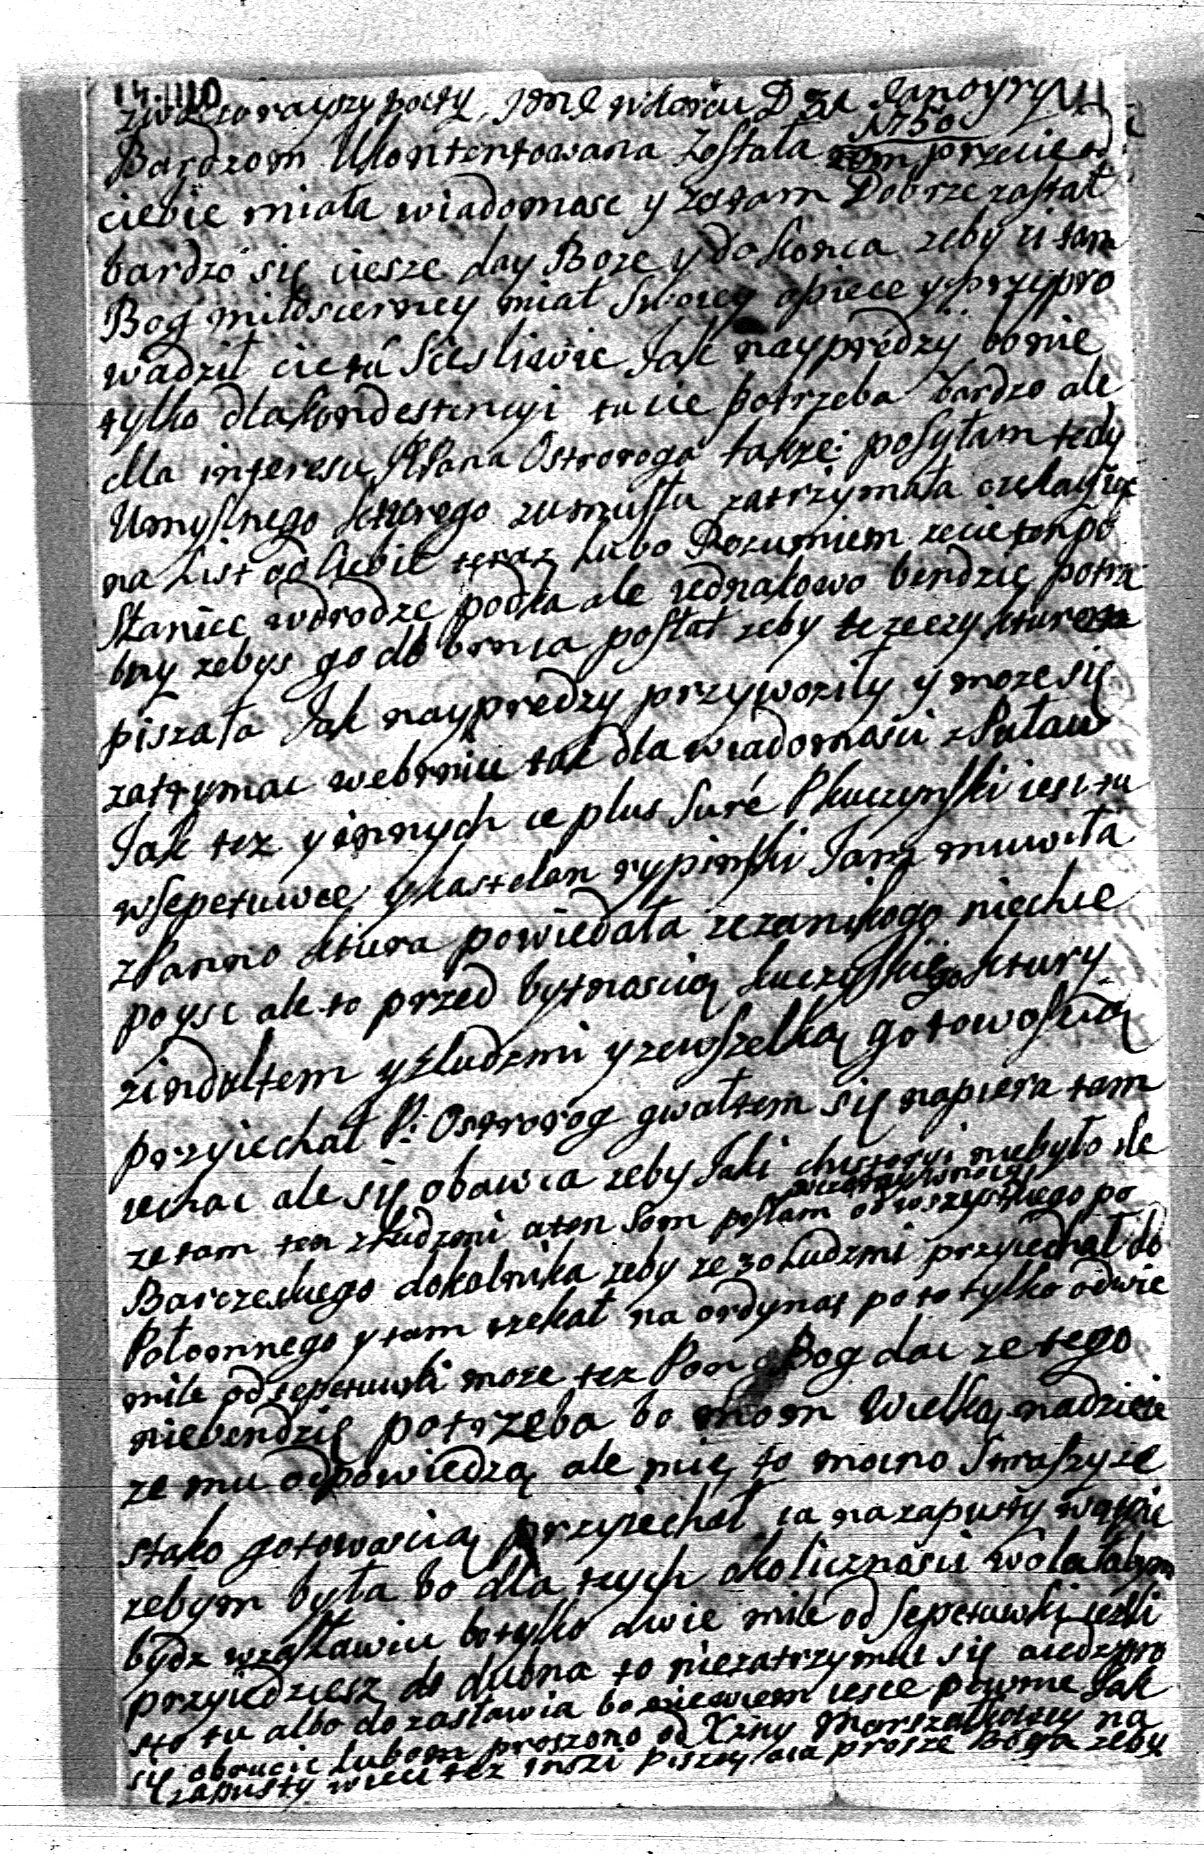 zwczorayszy poczty D 31 Januyry
1750
Bardzom Ukontentowana została zem przecie od
ciebie miała wiadomosc y zestam Dobrze zastał
bardzo się ciesze day Boze y do konca zeby ci tam
Bog miłosierney miał Swoiey opiece y przypro
wadził cie tu Sczesliwie Jak nayprędzy bo nie
tylko dla kondestencyi tu cie potrzeba bardzo ale
dla interesu JPana Ostroroga takze posyłam tedy
Umyslnego kturego zatrzymała czekaiąc
na List od Ciebie teraz lubo Rozumiem ze cie ten po
słaniec wdrodze ale iednakowo bendzie potrze
bny zebys go do brnia posłał zeby te rzeczy kture
pisała Jak nayprędzy przywoziły y moze się
zatrzymac webrniu tak dla wiadomosci z Puław
Jak tez y innych ce plus Suré P kuczynski iest tu
wsepetuwce y kastelan rypinski Jam muwiła
z Panno ktura powiedała ze zanikogo niechce
poysc ale to przed bytnoscią kuczynskiego ktury
zindultem y z ludzmi y zewszelką gotowoscią
przyiechał P: Ostrorog gwałtem się napiera tam
iechac ale się obawia zeby Jaki chistoryi niebyło ile
ze tam ten z ludzmi a ten Som posłam od wszystkiego po
Barczeskiego dokalnika zeby ze 30 ludzmi przyiechał do
Połonnego y tam czekał na ordynas po to tylko o dwie
mile od sepetuwki moze tez Pan Bog dac ze tego
niebendzie potrzeba bo mam Wielką nadzieie
ze mu odpowiedzą ale mię to mocno Straszy ze
stako gotowoscią przyiechał ia na zapusty
zebym była bo dla tych okolicznosci wolałabym
bydz wzasławiu bo tylko dwie mile od Sepetuwki iezli
przyiedziesz do dubna to niezatrzymui się a iedz pro
sto tu albo do zasławia bo niewiem iesce pewnie Jak
się obrucic lubom proszono od Xzny Marszałkowy na
zapusty wiec tez inszi piszą a ia prosze Boga zeby